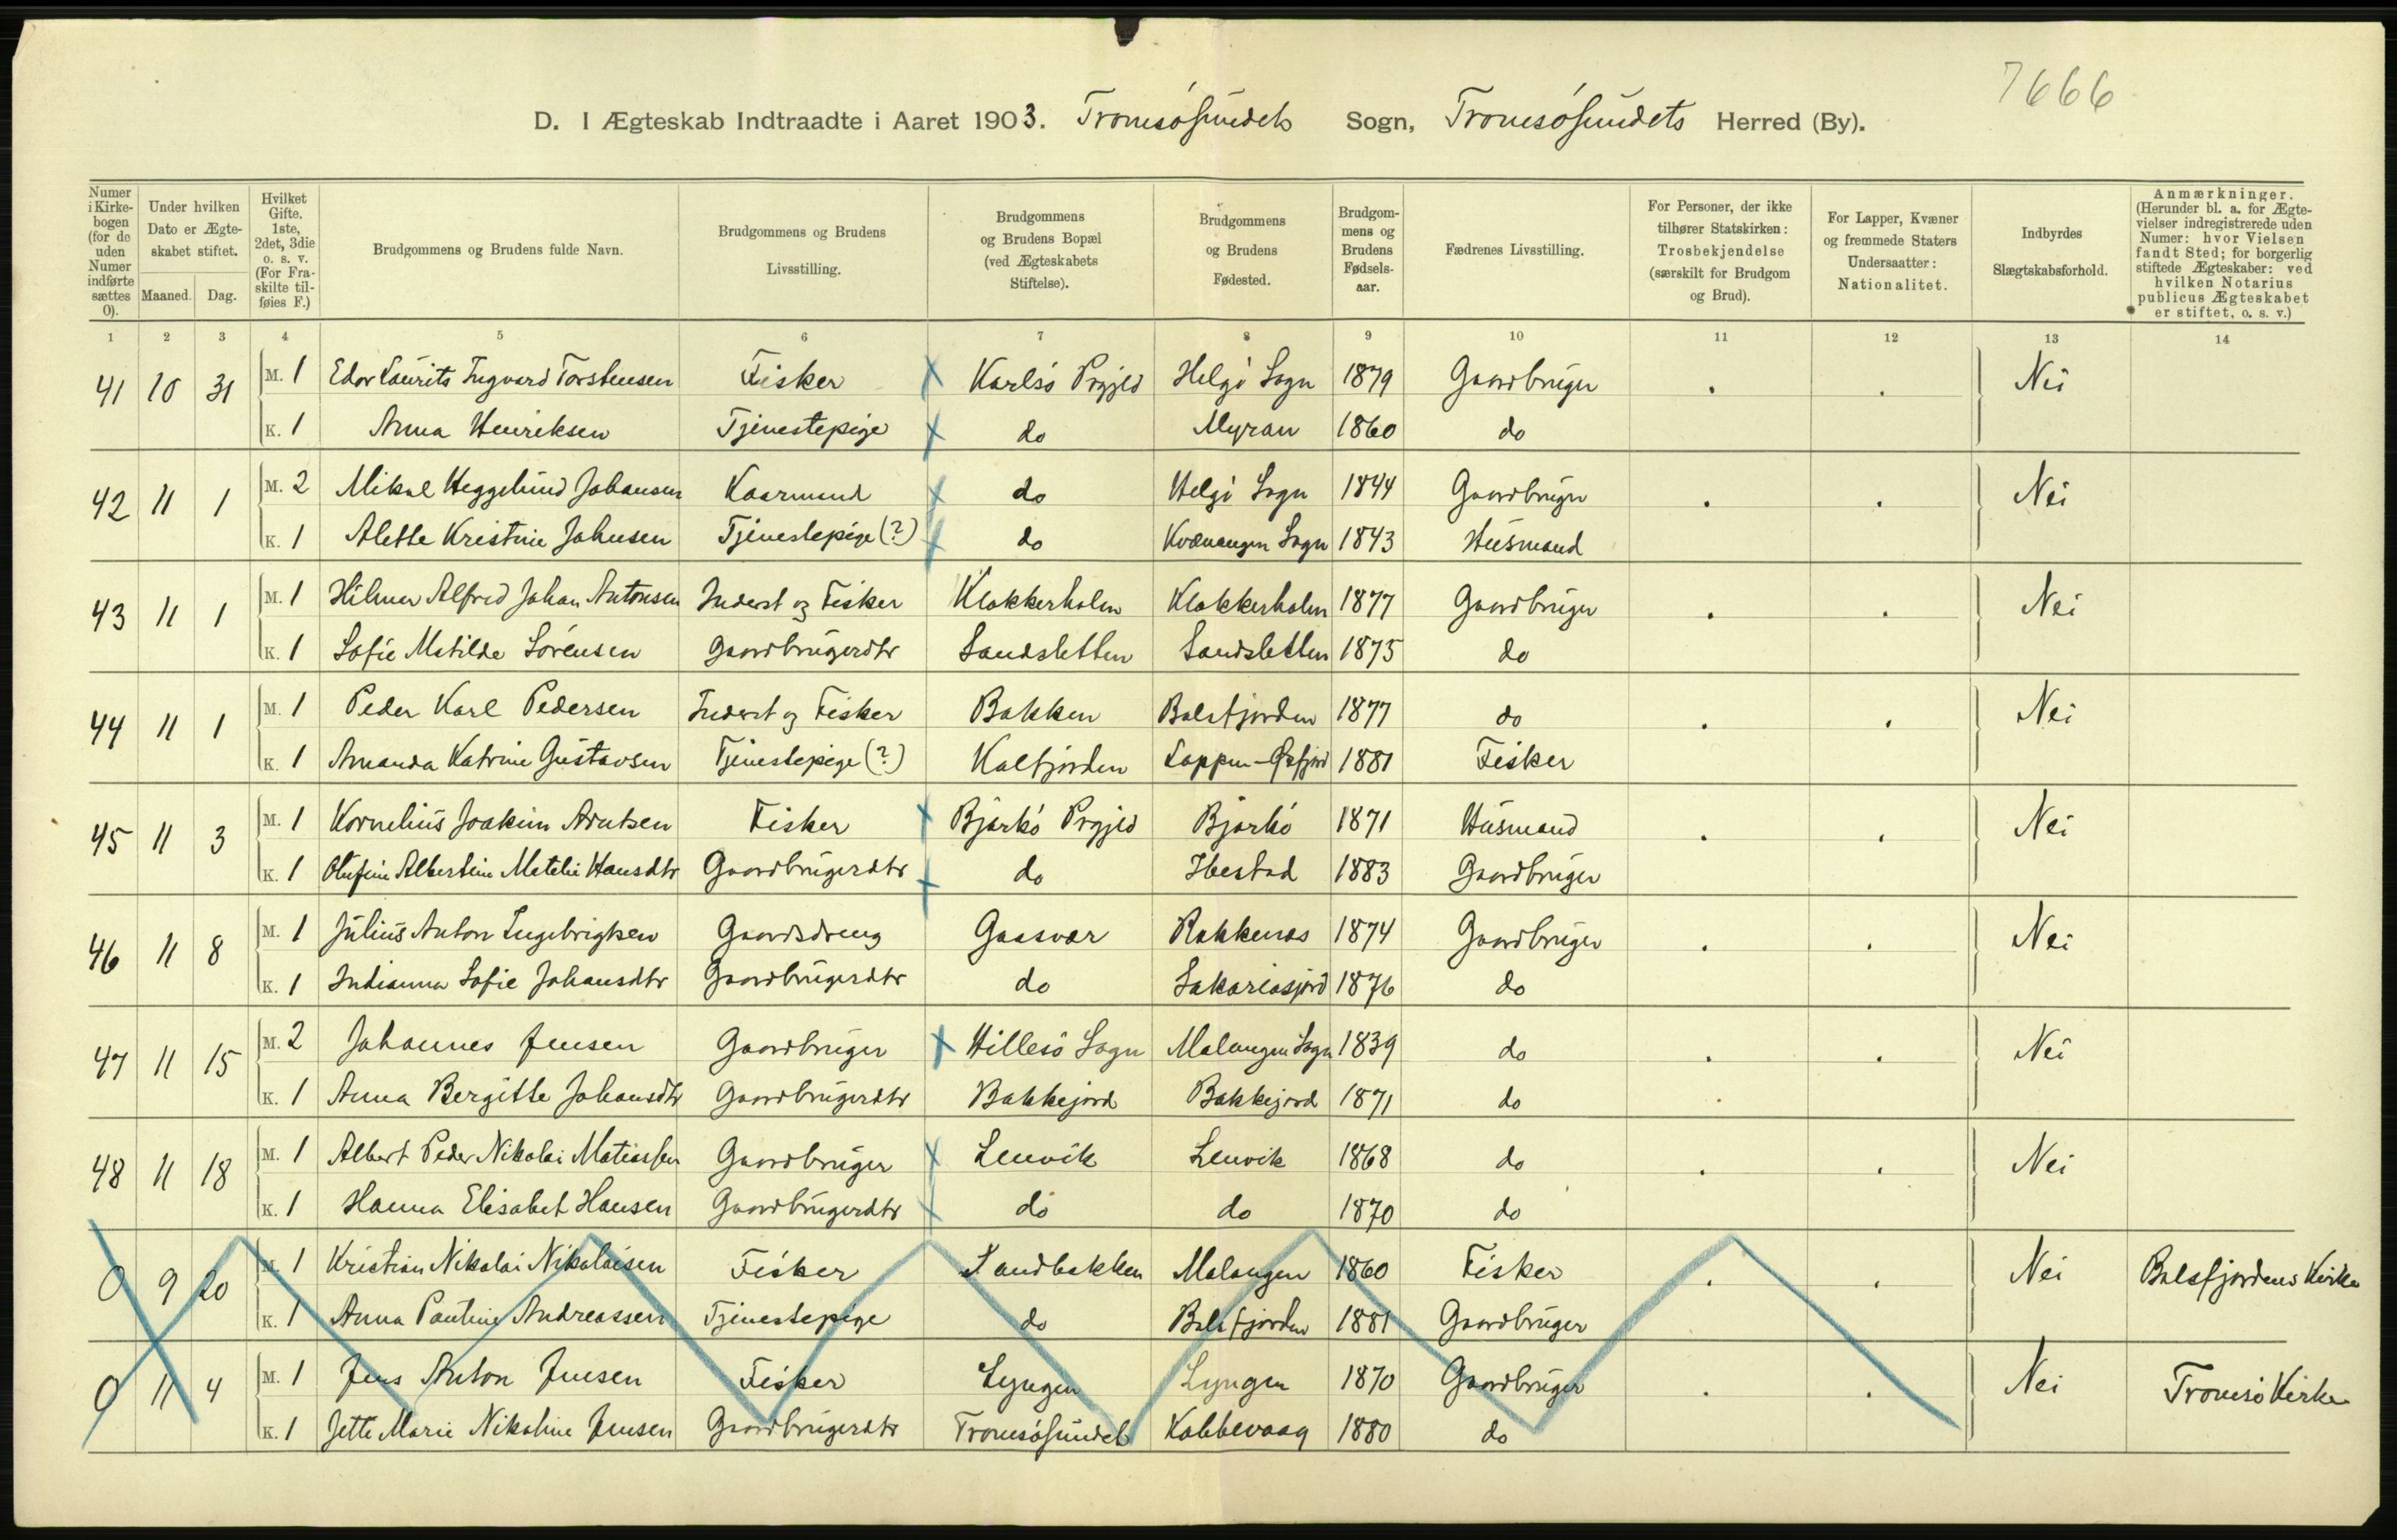 7666
D. I Ægteskab Indtraadte i Aaret 1903. Tromsøsundets Sogn, Tromsøsundets Herred (By).
Numer i Kirkebogen (for de uden Numer indførte sættes 0).
Under hvilken Dato er Ægteskabet stiftet.
Maaned. Dag.
Hvilket Gifte. 1ste, 2det, 3die o. s. v. (For Fraskilte tilføies F.)
Brudgommens og Brudens fulde Navn.
Brudgommens og Brudens Livsstilling.
Brudgommens og Brudens Bopæl (ved Ægteskabets Stiftelse).
Brudgommens og Brudens Fødested.
Brudgommens og Brudens Fødselsaar.
Fædrenes Livsstilling.
For Personer, der ikke tilhører Statskirken: Trosbekjendelse (særskilt for Brudgom og Brud).
For Lapper, Kvæner og fremmede Staters Undersaatter: Nationalitet.
Indbyrdes Slægtskabsforhold.
Anmærkninger. (Herunder bl. a. for Ægtevielser indregistrerede uden Numer: hvor Vielsen fandt Sted; for borgerlig stiftede Ægteskaber: ved hvilken Notarius publicus Ægteskabet er stiftet, o. s. v.)
1 2 3 4 5 6 7 8 9 10 11 12 13 14
41 10 31 M. 1 Edor Laurits Ingvard Torstensen Fisker Karlsø Prgjld Helgø Sogn 1879 Gaardbruger . . Nei
K. 1 Anna Henriksen Tjenestepige do Myran 1860 do
42 11 1 M. 2 Mikal Heggelund Johansen Kaarmand do Helgø Sogn 1844 Gaardbruger . . Nei
K. 1 Alette Kristine Johnsen Tjenestepige (?) do Kvænangen Sogn 1843 Husmand
43 11 1 M. 1 Hilmer Alfred Johan Antonsen Inderst og Fisker Klokkerholm Klokkerholm 1877 Gaardbruger . . Nei
K. 1 Sofie Matilde Sørensen Gaardbrugerdtr Sandsletten Sandsletten 1875 do
44 11 1 M. 1 Peder Karl Pedersen Inderst og Fisker Bakken Balsfjorden 1877 do . . Nei
K. 1 Amanda Katrine Gustavsen Tjenestepige (?) Kalfjorden Loppen-Øxfjord 1881 Fisker
45 11 3 M. 1 Kornelius Joakim Arntsen Fisker Bjarkø Prgjld Bjarkø 1871 Husmand . . Nei
K. 1 Olufine Albertine Metelie Hansdtr Gaardbrugerdtr do Ibestad 1883 Gaardbruger
46 11 8 M. 1 Julius Anton Ingebrigtsen Gaardsdreng Gaasvær Rakkenæs 1874 Gaardbruger . . Nei
K. 1 Indianna Sofie Johansdtr Gaardbrugerdtr do Sakariasjord 1876 do
47 11 15 M. 2 Johannes Jensen Gaardbruger Hillesø Sogn Malangen Sogn 1839 do . . Nei
K. 1 Anna Bergitte Johansdtr Gaardbrugerdtr Bakkejord Bakkejord 1871 do
48 11 18 M. 1 Albert Peder Nikolai Matiassen Gaardbruger Lenvik Lenvik 1868 do . . Nei
K. 1 Hanna Elisabet Hansen Gaardbrugerdtr do do 1870 do
0 9 20 M. 1 Kristian Nikolai Nikolaisen Fisker Sandbakken Malangen 1860 Fisker . . Nei Balsfjordens Kirke
K. 1 Anna Pauline Andreassen Tjenestepige do Balsfjorden 1881 Gaardbruger
0 11 4 M. 1 Jens Anton Jensen Fisker Lyngen Lyngen 1870 Gaardbruger . . Nei Tromsø Kirke
K. 1 Jette Marie Nikoline Jensen Gaardbrugerdtr Tromsøsundet Kobbevaag 1880 do